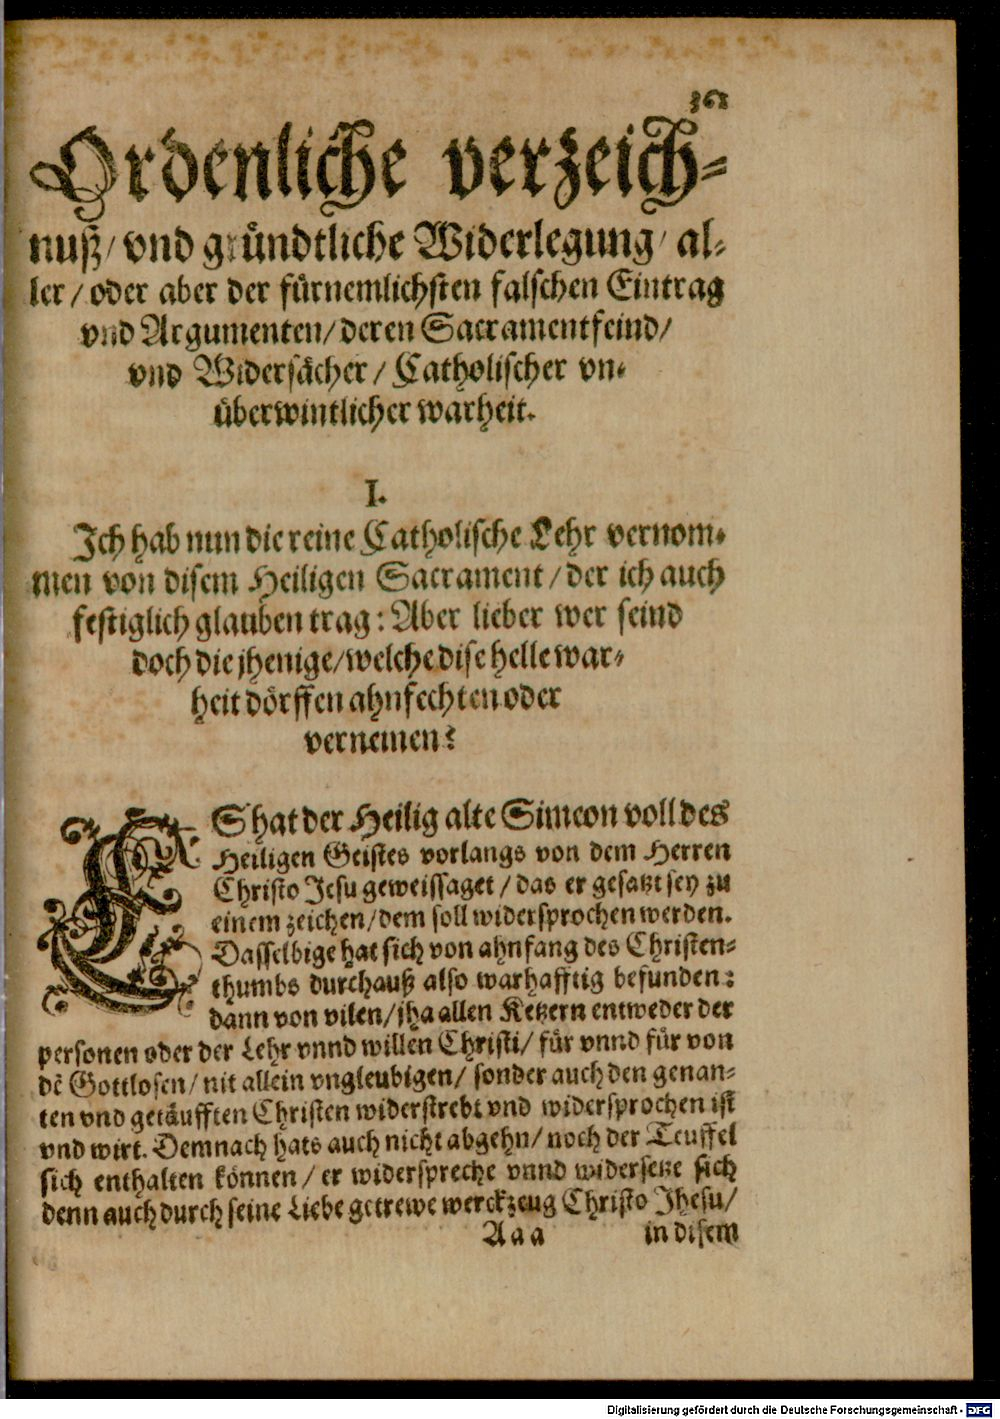 361
Ordenliche verzeich-
nuß/ vnd gründtliche Widerlegung/ al-
ler/ oder aber der fürnemlichsten falschen Eintrag
vnd Argumenten/ deren Sacramentfeind/
vnd Widersächer/ Catholischer vn-
überwintlicher warheit.
I.
Ich hab nun die reine Catholische Lehr vernom-
men von disem Heiligen Sacrament/ der ich auch
festiglich glauben trag: Aber lieber wer seind
doch die jhenige/ welche dise helle war-
heit dörffen ahnfechten oder
verneinen?
ES hat der Heilig alte Simeon voll des
Heiligen Geistes vorlangs von dem Herren
Christo Jesu geweissaget/ das er gesatzt sey zu
einem zeichen/ dem soll widersprochen werden.
Dasselbige hat sich von ahnfang des Christen-
thumbs durchauß also warhafftig befunden:
dann von vilen/ jha allen Ketzern entweder der
personen oder der Lehr vnnd willen Christi/ für vnnd für von
dẽ Gottlosen/ nit allein vngleubigen/ sonder auch den genan-
ten vnd getäufften Christen widerstrebt vnd widersprochen ist
vnd wirt. Demnach hats auch nicht abgehn/ noch der Teuffel
sich enthalten können/ er widerspreche vnnd widersetze sich
denn auch durch seine Liebe getrewe werckzeug Christo Jhesu/
Aaa in disem
Digitalisierung gefördert durch die Deutsche Forschungsgemeinschaft - DFG